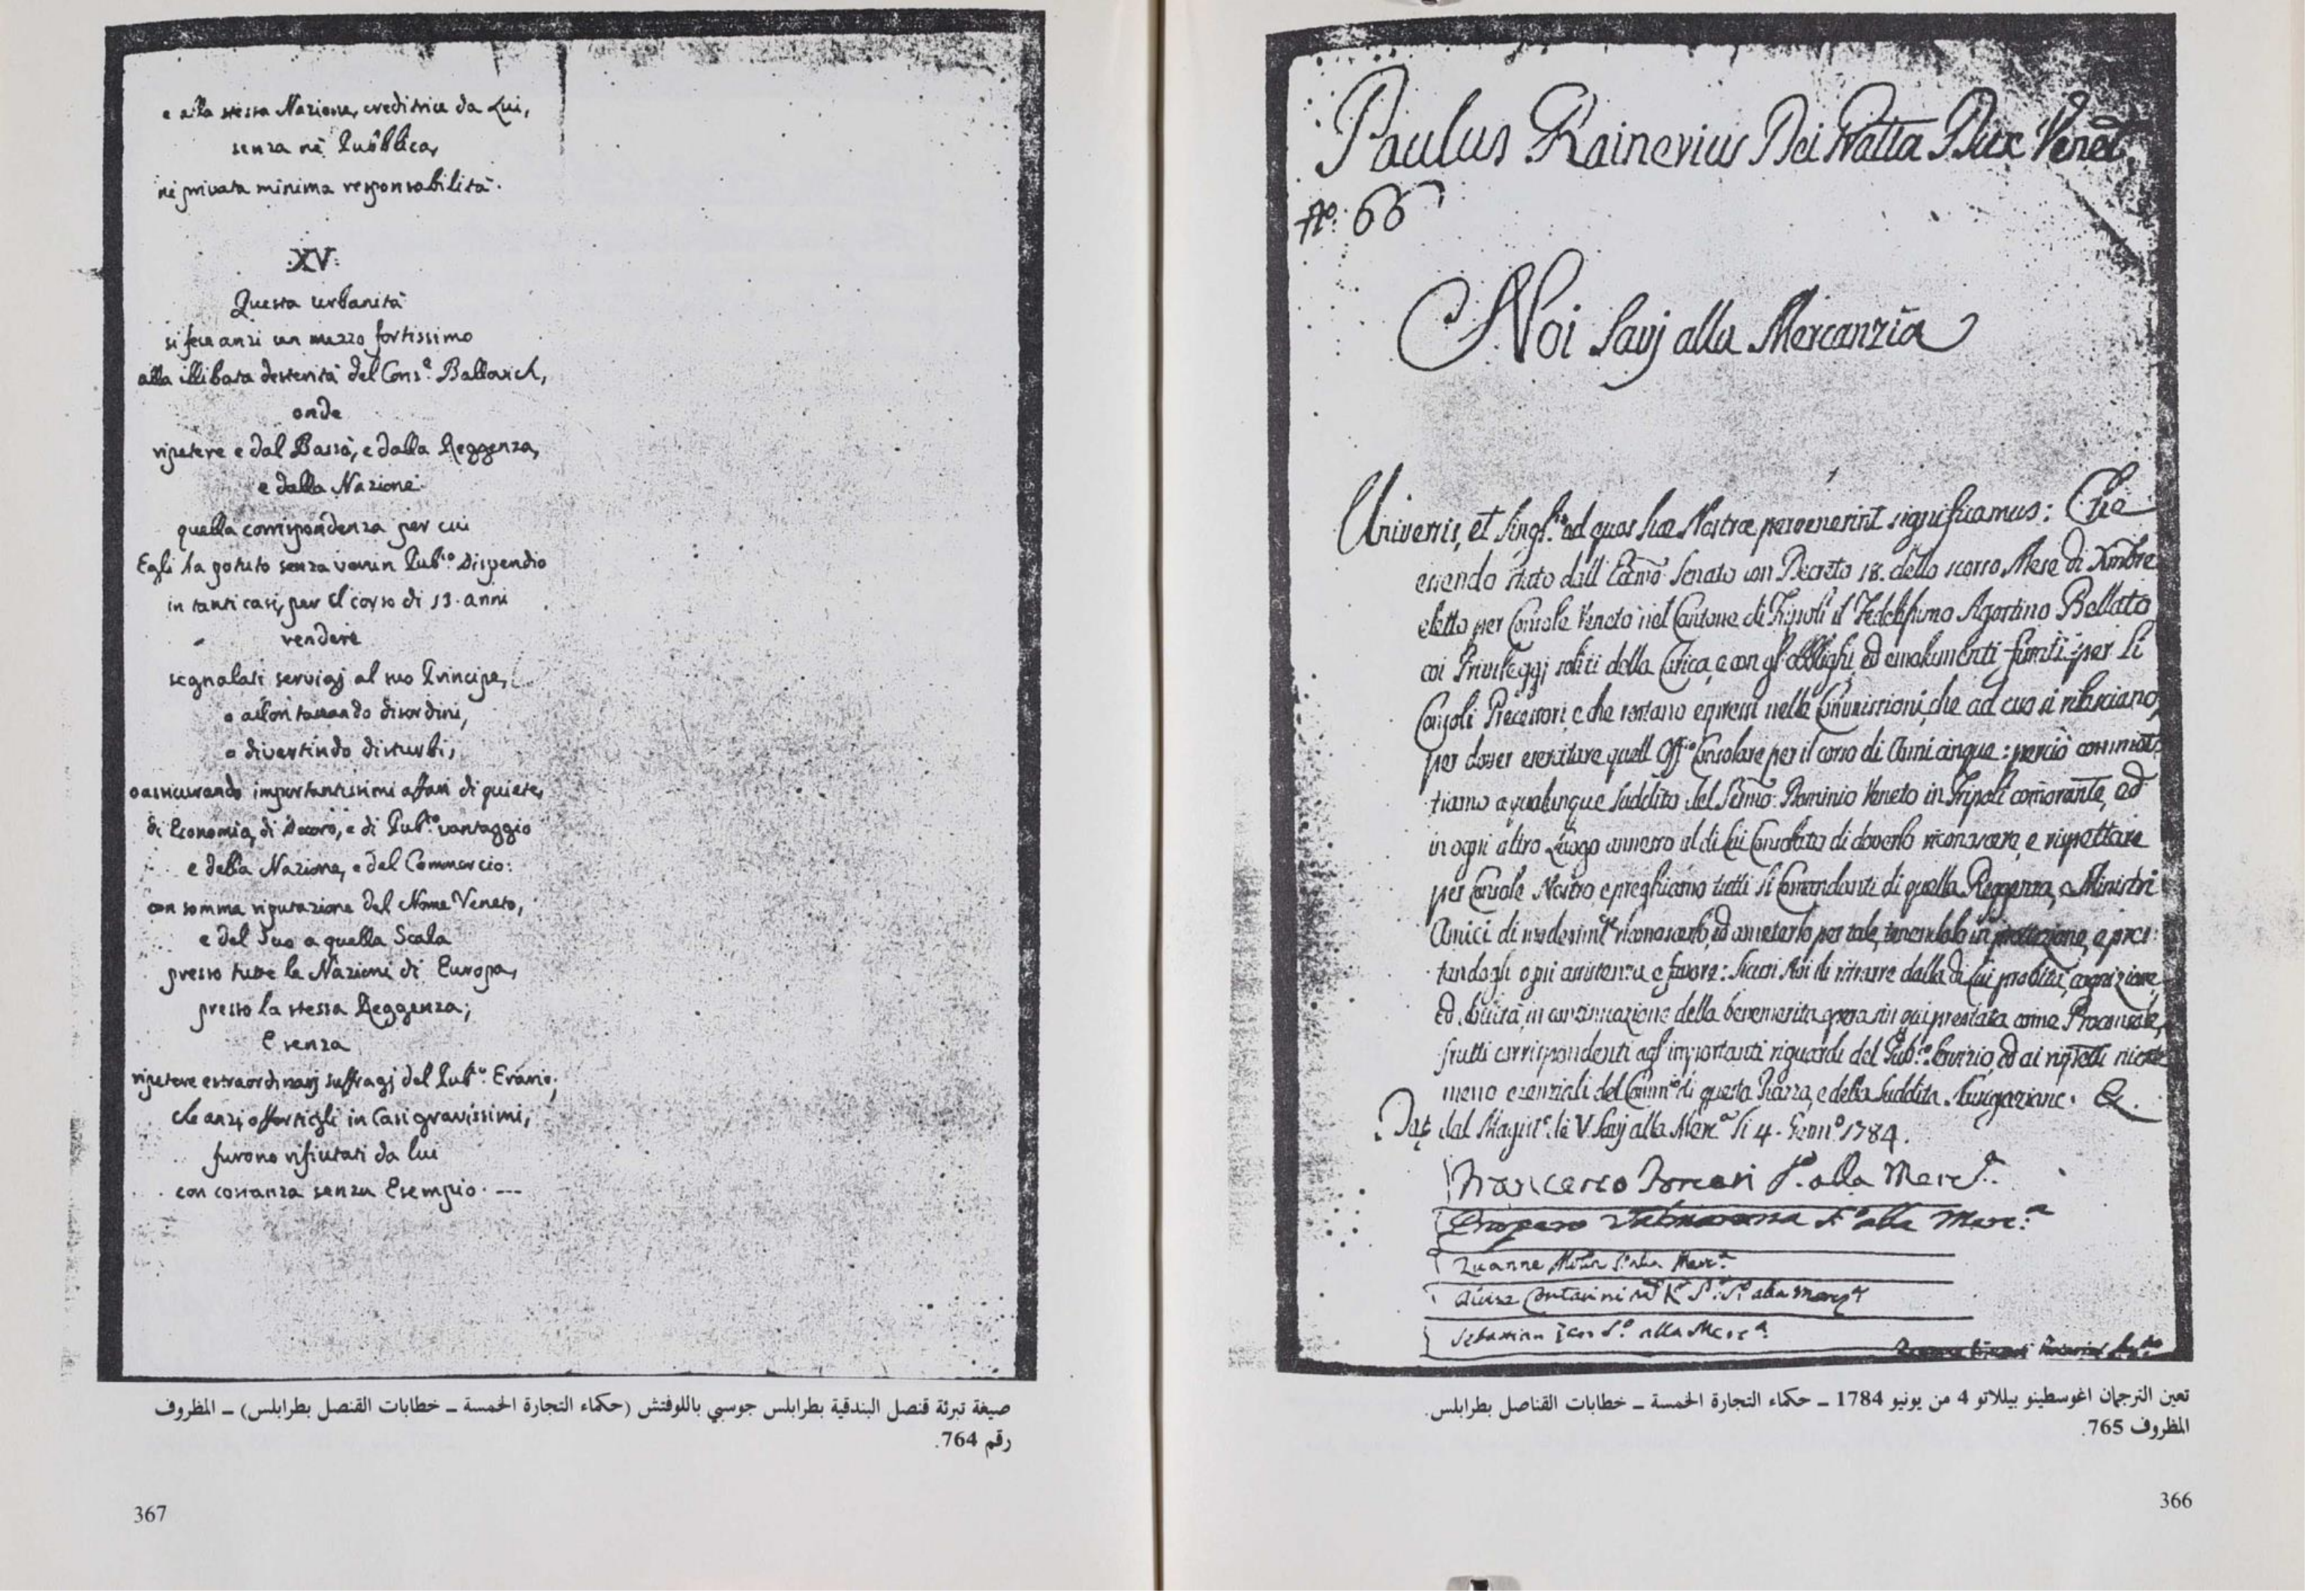 Paulus Rainerius Dei Gratia Dux Venet.
Nº: 66
Noi Savj alla Mercanzia
Universis, et Singl.is ad quos hæ Nostræ pervenerint significamus: Che
essendo stato dall' Eccmo Senato con Decreto 18. dello scorso Mese di Xmbre
eletto per Console Veneto nel Cantone di Tripoli il Fedelissimo Agostino Bellato
coi Privileggj soliti della Carica, e con gl' obblighi, ed emolumenti per li
Consoli Precessori e che restano espressi nelle Commissioni, che ad esso si rilasciano,
per dover esercitare quell' Off.o Consolare per il corso di Anni cinque: perciò commet-
tiamo a qualunque Suddito del Sermo. Dominio Veneto in Tripoli comorante, ed
in ogni altro Luogo annesso al di lui Consolato di doverlo riconoscere, e rispettare
per Console Nostro e preghiamo tutti li Comandanti di quella Reggenza, e Ministri
Amici di riconoscerlo, ed ametterlo per tale, tenendolo in protezione, e pres-
tandogli ogni assistenza e favore: sicuri Noi di ritrarre dalla di lui probità, cognizione,
ed in continuazione della benemerita opera sin qui prestata come Proconsole,
frutti corrispondenti agl' importanti riguardi del Pub.o Servizio, ed ai rispetti niente
meno essenziali del Comm.o di questa Piazza, e della Suddita Navigazione. &.
Dat. dal Magist.o de V Savj alla Merc.a li 4. Genn.o 1784.
Francesco S. alla Merc.a
S.o alla Merc.a
Zuanne S. alla Merc.a
Alvise Contarini K S. alla Merc.a
Sebastian S.o alla Merc.a
تعين الترجمان اغوسطينو بيللاتو 4 من يونيو 1784 ــ حكماء التجارة الخمسة ــ خطابات القناصل بطرابلس.
المظروف 765.
366
e alla stessa Nazione, creditrice da Lui,
senza nè Pubblica,
nè privata minima responsabilità.
XV:
Questa urbanità
si fece anzi un mezzo fortissimo
alla illibata desterità del Cons.e Ballovich,
onde
ripetere e dal Bassà, e dalla Reggenza,
e dalla Nazione
quella corrispondenza per cui
Egli ha potuto senza verun Pub.o Dispendio
in tanti casi, per il corso di 13. anni
rendere
segnalati servigj al suo Principe,
o allontanando disordini,
o divertindo disturbi,
o assicurando importantissimi affari di quiete,
di Economia, di Decoro, e di Pub.o vantaggio
e della Nazione, e del Commercio:
con somma riputazione del Nome Veneto,
e del Suo a quella Scala
presso tutte le Nazioni di Europa,
presso la stessa Reggenza;
E senza
ripetere estraordinarj suffragj del Pub.o Erario;
che anzi offertigli in Casi gravissimi,
furono rifiutati da lui
con costanza senza Esempio. ---
صيغة تبرئة قنصل البندقية بطرابلس جوسبي باللوفتش (حكماء التجارة الخمسة ــ خطابات القنصل بطرابلس) ــ المظروف
رقم 764.
367